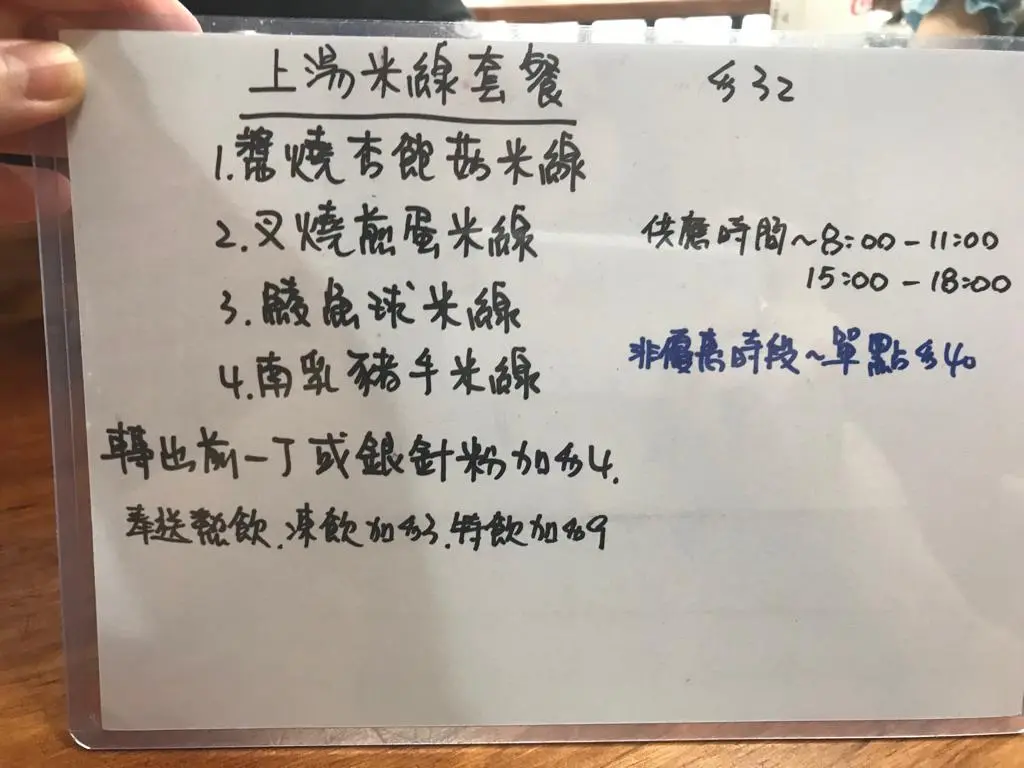 上湯米線套餐 $32
1.醬燒杏鮑菇米線
2.叉燒煎蛋米線
3.鯪魚球米線
4.南乳豬手米線
供應時間~8:00-11:00
15:00-18:00
非優惠時段~單點$40
轉出前一丁或銀針粉加$4.
奉送熱飲.凍飲加$3.特飲加$9